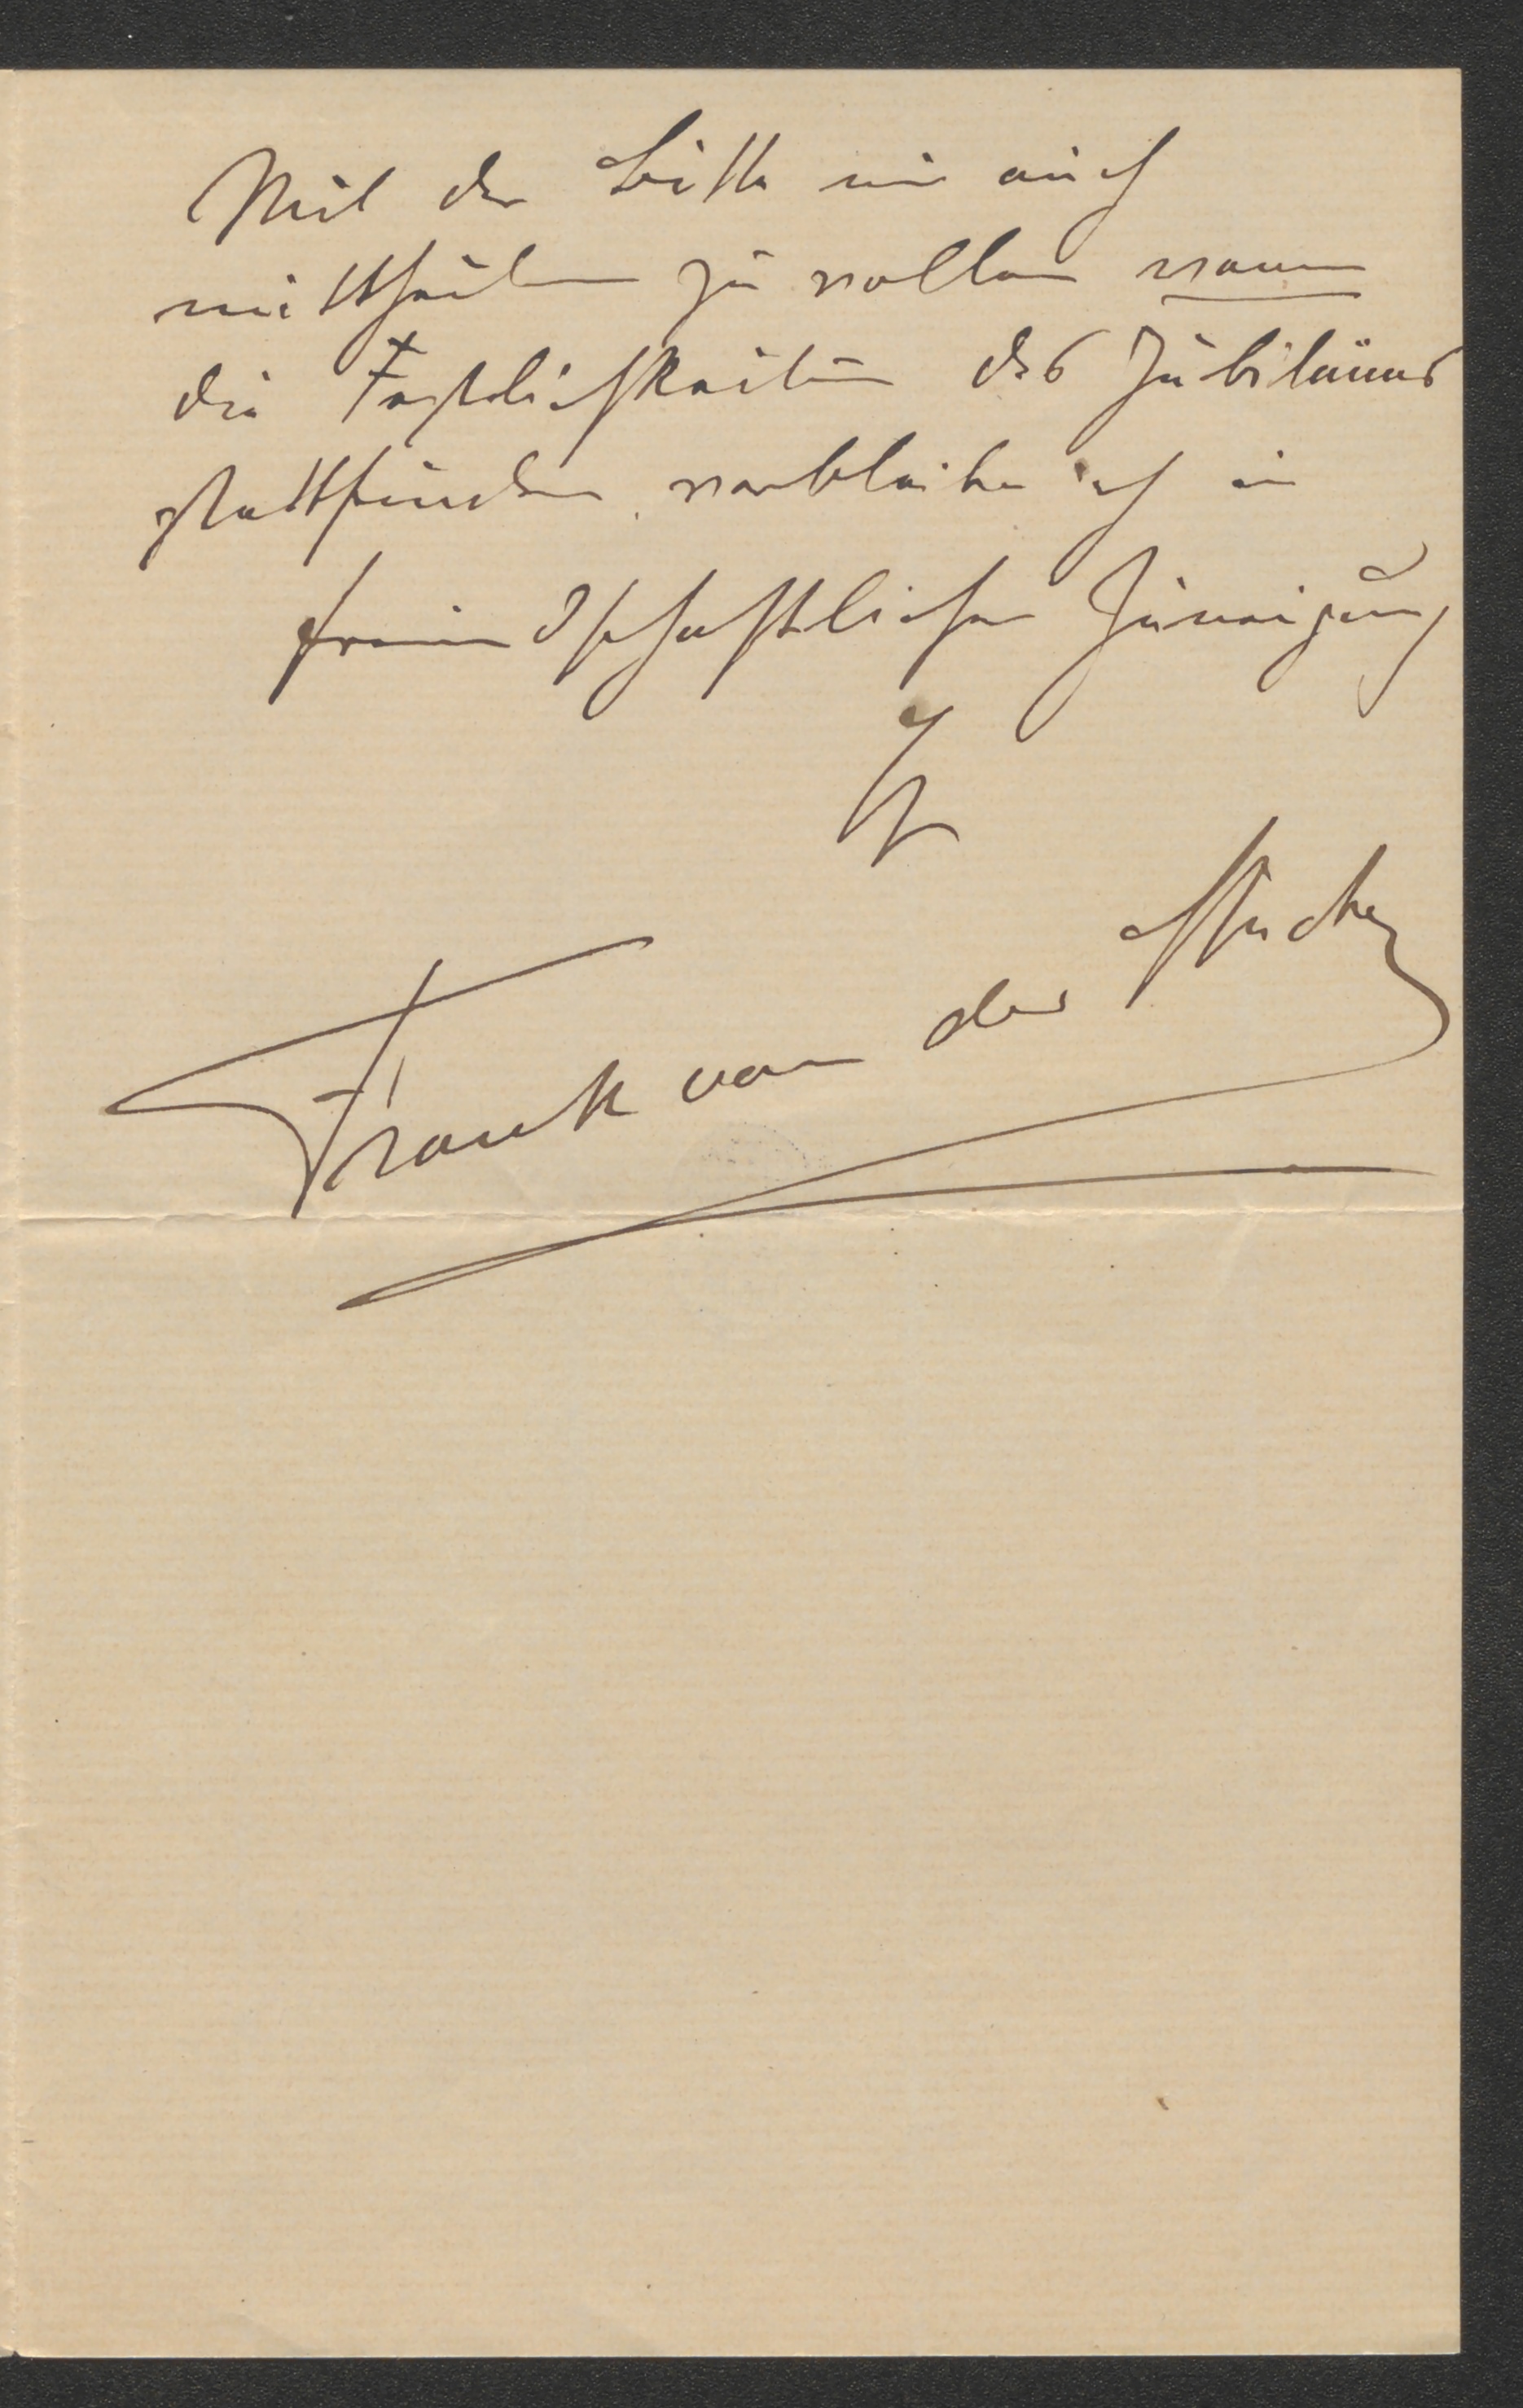 Mit der Bitte mir auch
mittheilen zu wollen wann
die Festlichkeiten des Jubiläums
stattfinden verbleibe ich in
freundschaftlicher Zuneigung
Ihr
Frank van der Stucken